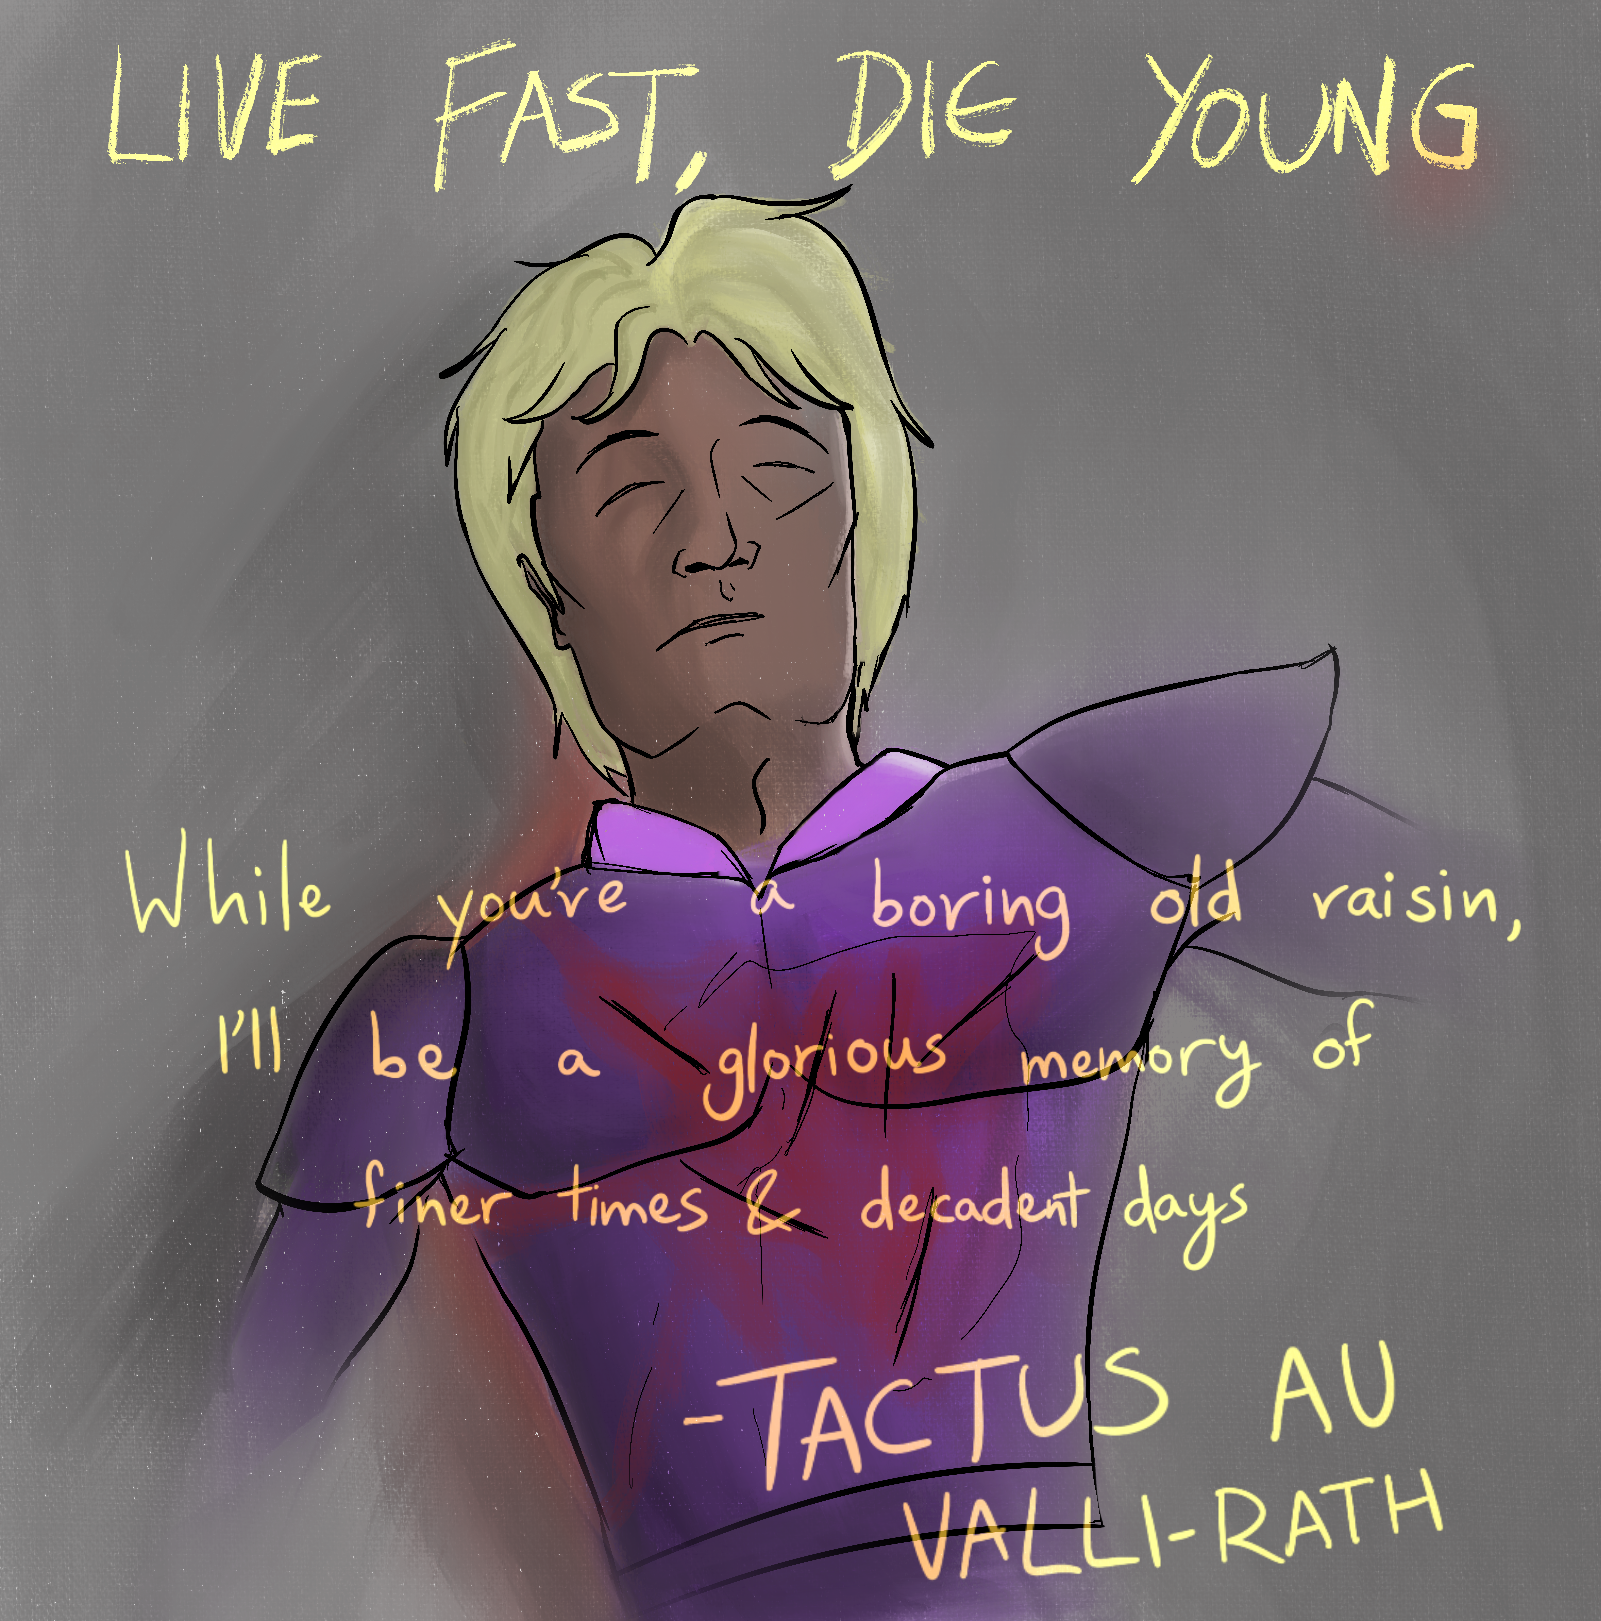 LIVE FAST, DIE YOUNG
While you're a boring old raisin,
I'll be a glorious memory of
finer times & decadent days
-TACTUS AU
VALLI-RATH